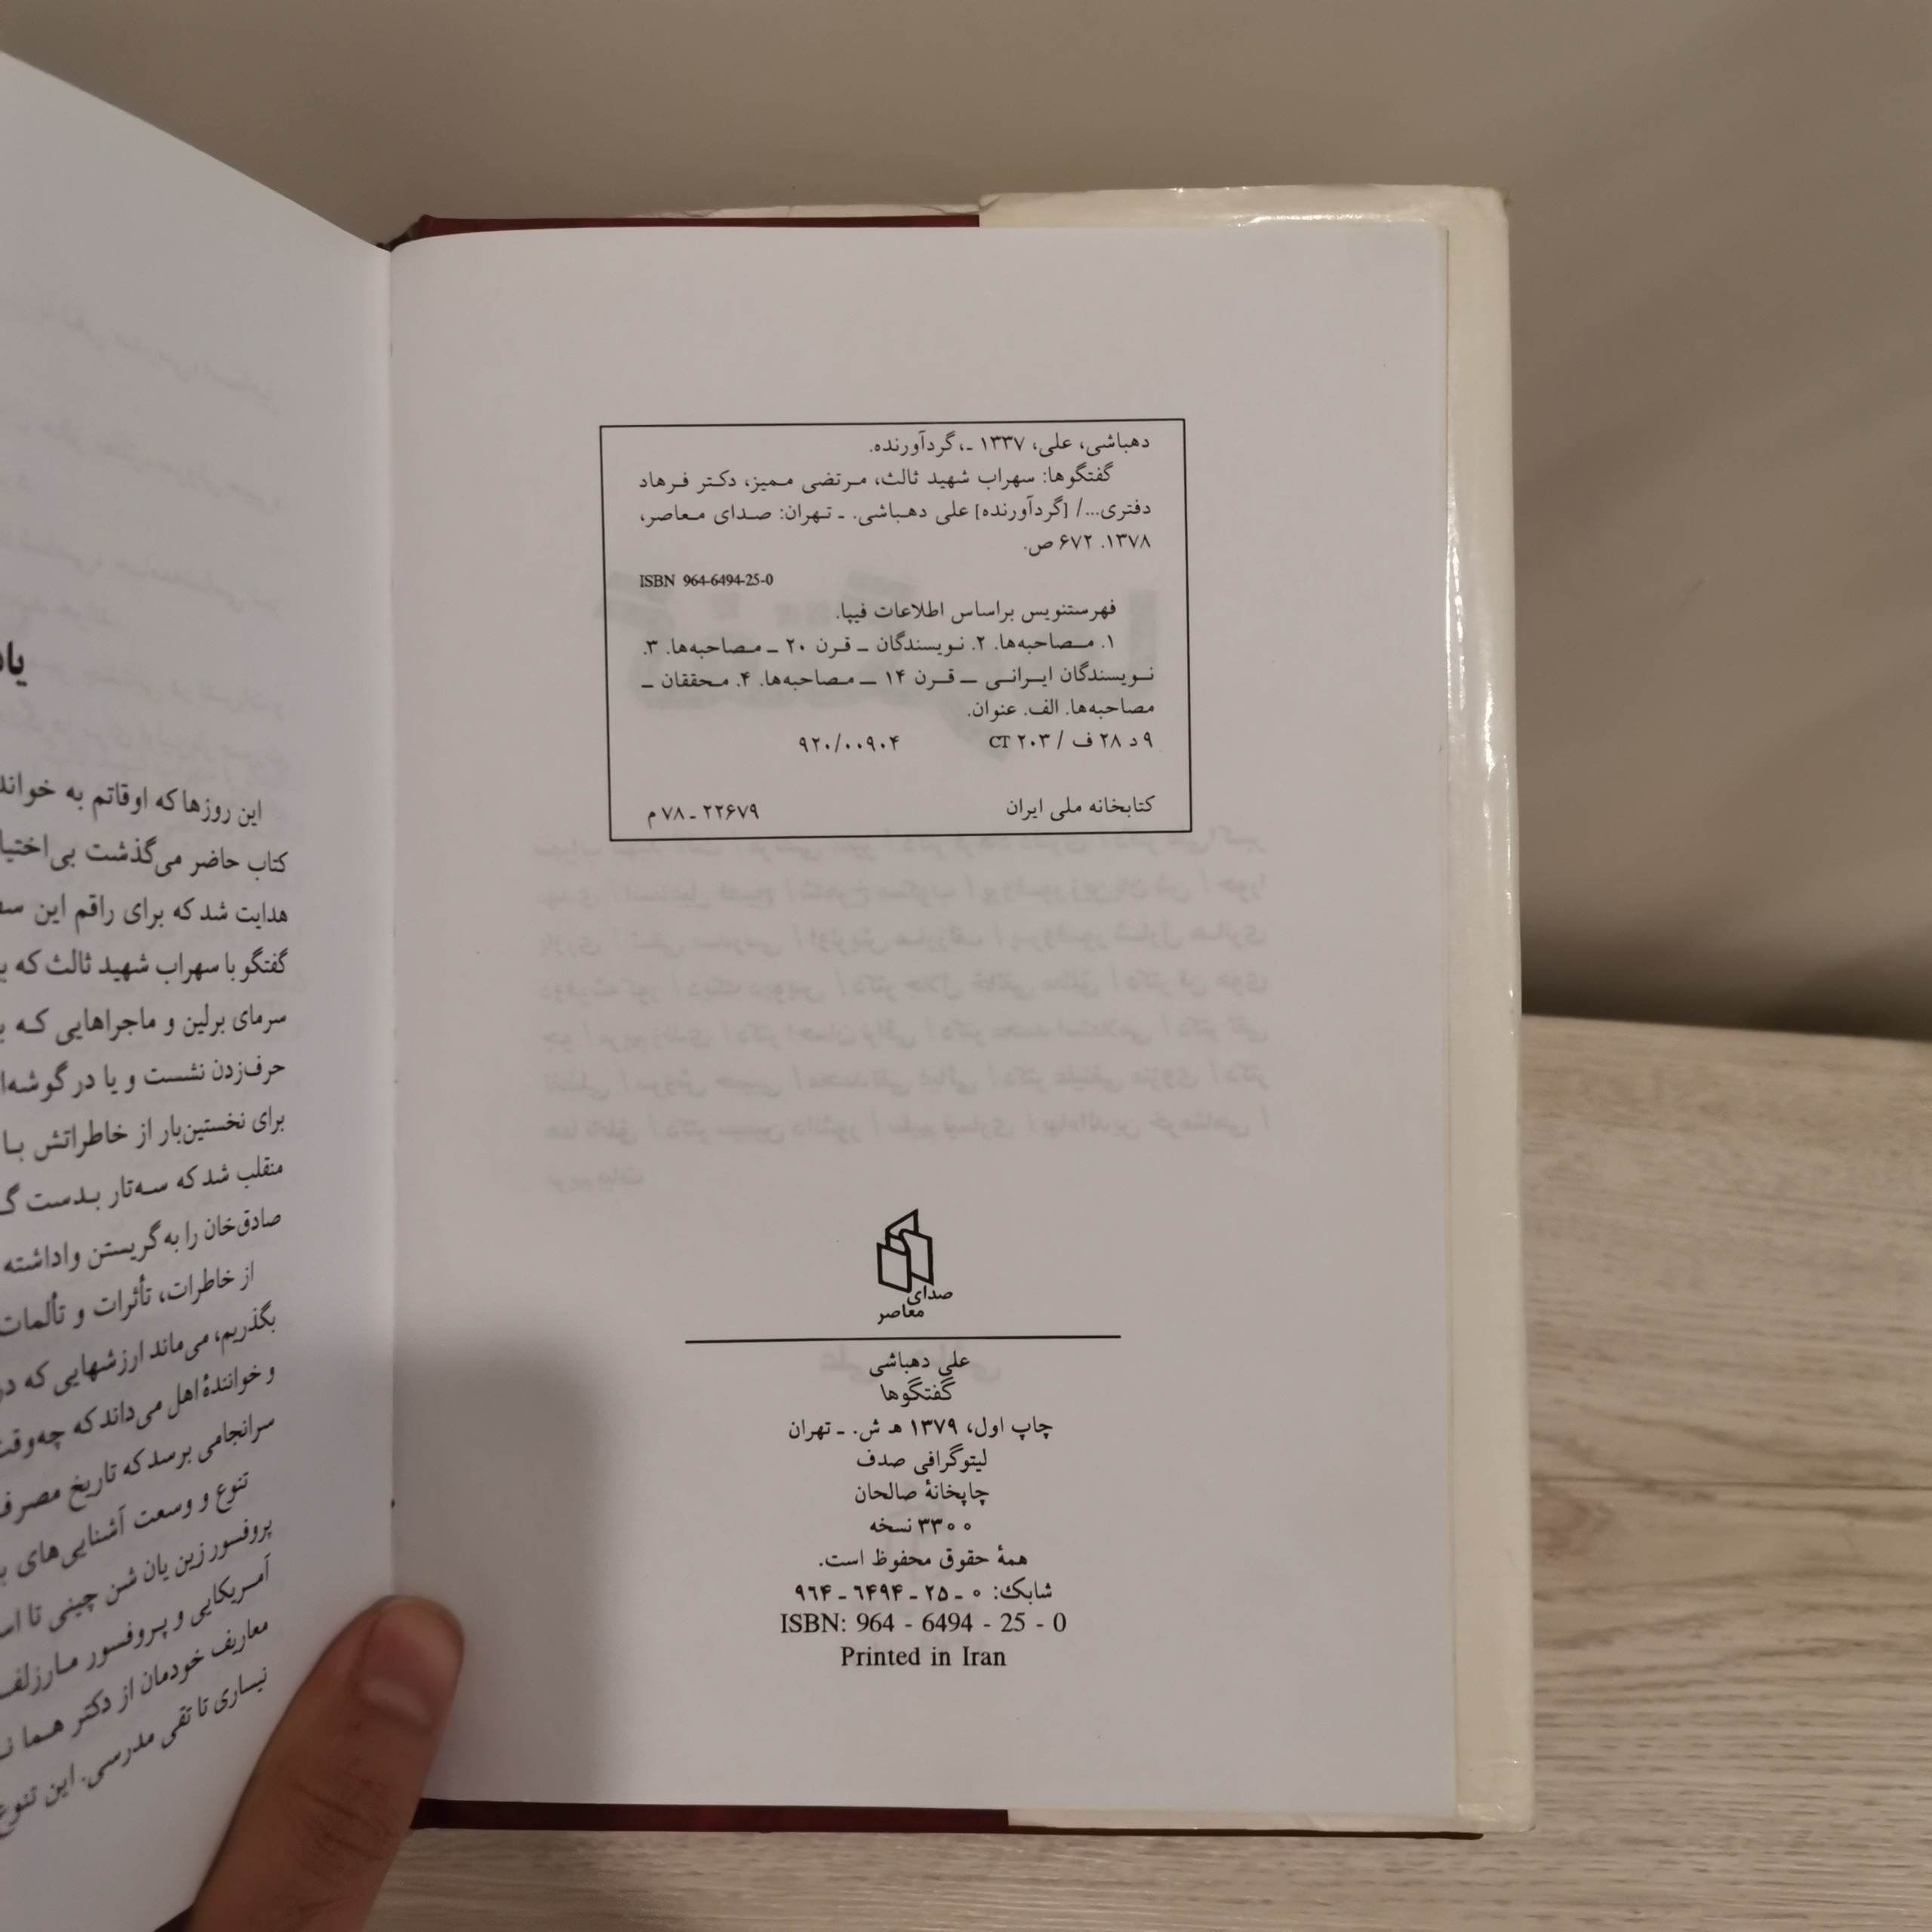 دهباشی، علی، ۱۳۳۷ ـ، گردآورنده.
گفتگوها: سهراب شهید ثالث، مرتضی ممیز، دکتر فرهاد
دفتری.../ [گردآورنده] علی دهباشی. ـ تهران: صدای معاصر،
۱۳۷۸. ۶۷۲ ص.
ISBN 964-6494-25-0
فهرستنویس براساس اطلاعات فیپا.
۱. مصاحبه‌ها. ۲. نویسندگان ــ قرن ۲۰ ــ مصاحبه‌ها. ۳.
نویسندگان ایرانی ــ قرن ۱۴ ــ مصاحبه‌ها. ۴. محققان ــ
مصاحبه‌ها. الف. عنوان.
۹ د ۲۸ ف / ۲۰۳ CT ۹۲۰/۰۰۹۰۴
کتابخانه ملی ایران ۲۲۶۷۹ ـ ۷۸ م
صدای
معاصر
علی دهباشی
گفتگوها
چاپ اول، ۱۳۷۹ ه‍ ش. ـ تهران
لیتوگرافی صدف
چاپخانهٔ صالحان
۳۳۰۰ نسخه
همهٔ حقوق محفوظ است.
شابک: ۰ ـ ۲۵ ـ ۶۴۹۴ ـ ۹۶۴
ISBN: 964 - 6494 - 25 - 0
Printed in Iran
این روزها که اوقاتم به
کتاب حاضر می‌گذشت
هدایت شد که برای راقم این
گفتگو با سهراب شهید ثالث که
سرمای برلین و ماجراهایی که
حرف‌زدن نشست و یا در
برای نخستین‌بار از خاطراتش با
منقلب شد که سه‌تار بدست
صادق‌خان را به گریستن واداشته
از خاطرات، تأثرات و تألمات
بگذریم، می‌ماند ارزشهایی که
و خوانندهٔ اهل می‌داند که
سرانجامی برسد که تاریخ
تنوع و وسعت آشنایی‌های
پروفسور زین یان شن چینی تا
آمریکایی و پروفسور
معاریف خودمان از دکتر هما
نیساری تا تقی مدرسی. این تنوع